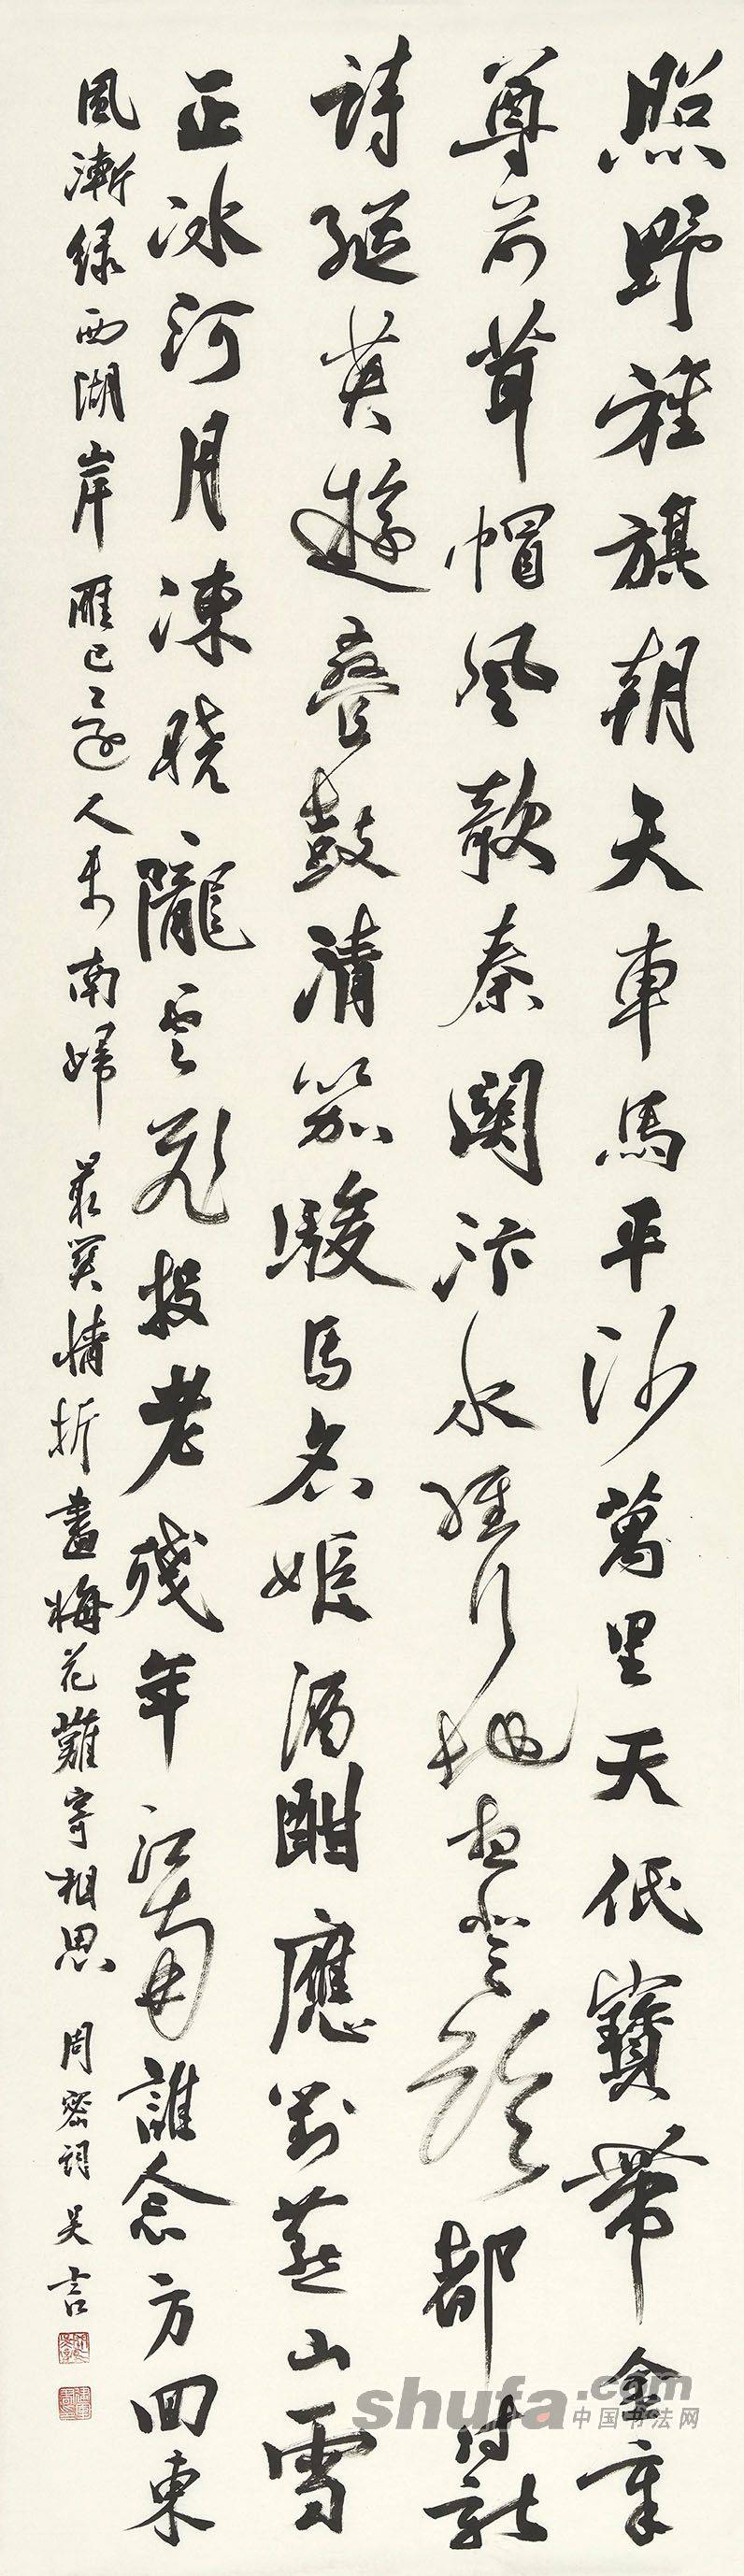 照野旌旗朝天車馬平沙萬里天低寶帶金章
尊前茸帽風欹秦關汴水經行地想登臨都付新
詩縱英遊疊鼓清笳駿馬名姬酒酣應對燕山雪
正冰河月凍曉隴云飛投老殘年江南誰念方回東
風漸綠西湖岸雁已還人未南歸最關情折盡梅花難寄相思 周密詞 吴言
shufa.com
中国书法网